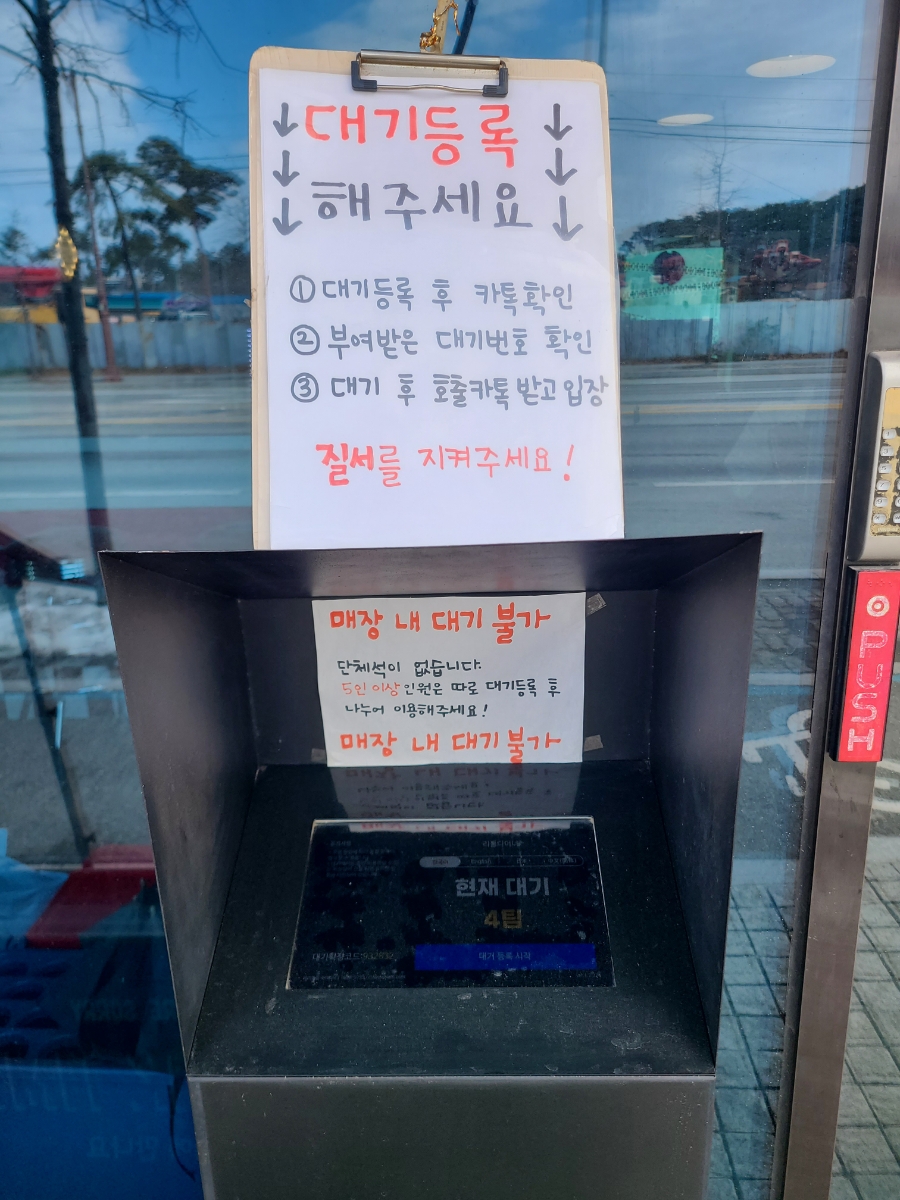 대기등록
해주세요
① 대기등록 후 카톡확인
② 부여받은 대기번호 확인
③ 대기 후 호출카톡받고입장
질서를 지켜주세요!
매장 내 대기 불가
단체석이 없습니다.
5인 이상 인원은 따로 대기등록 후
나누어 이용해주세요!
매장 내 대기 불가
현재 대기
4팀
대기 등록 시작
PUSH